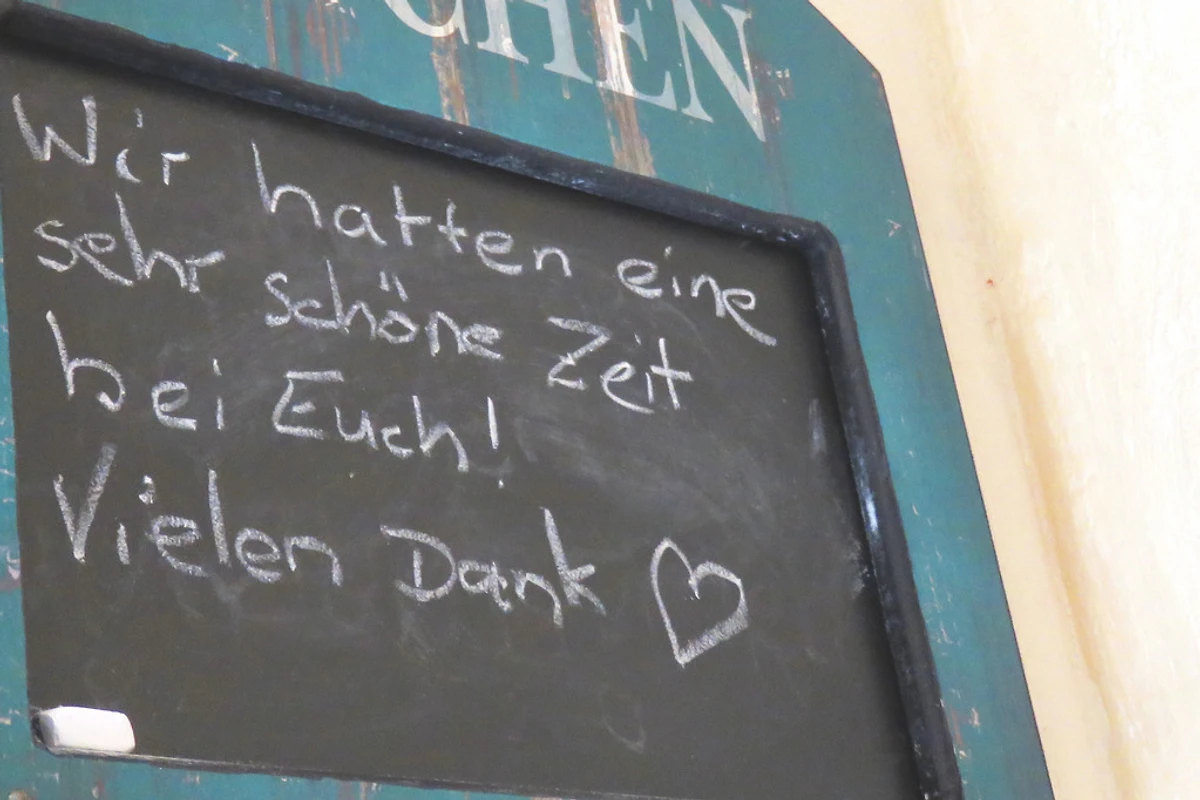 CHEN
Wir hatten eine
sehr schöne Zeit
bei Euch!
Vielen Dank ♡